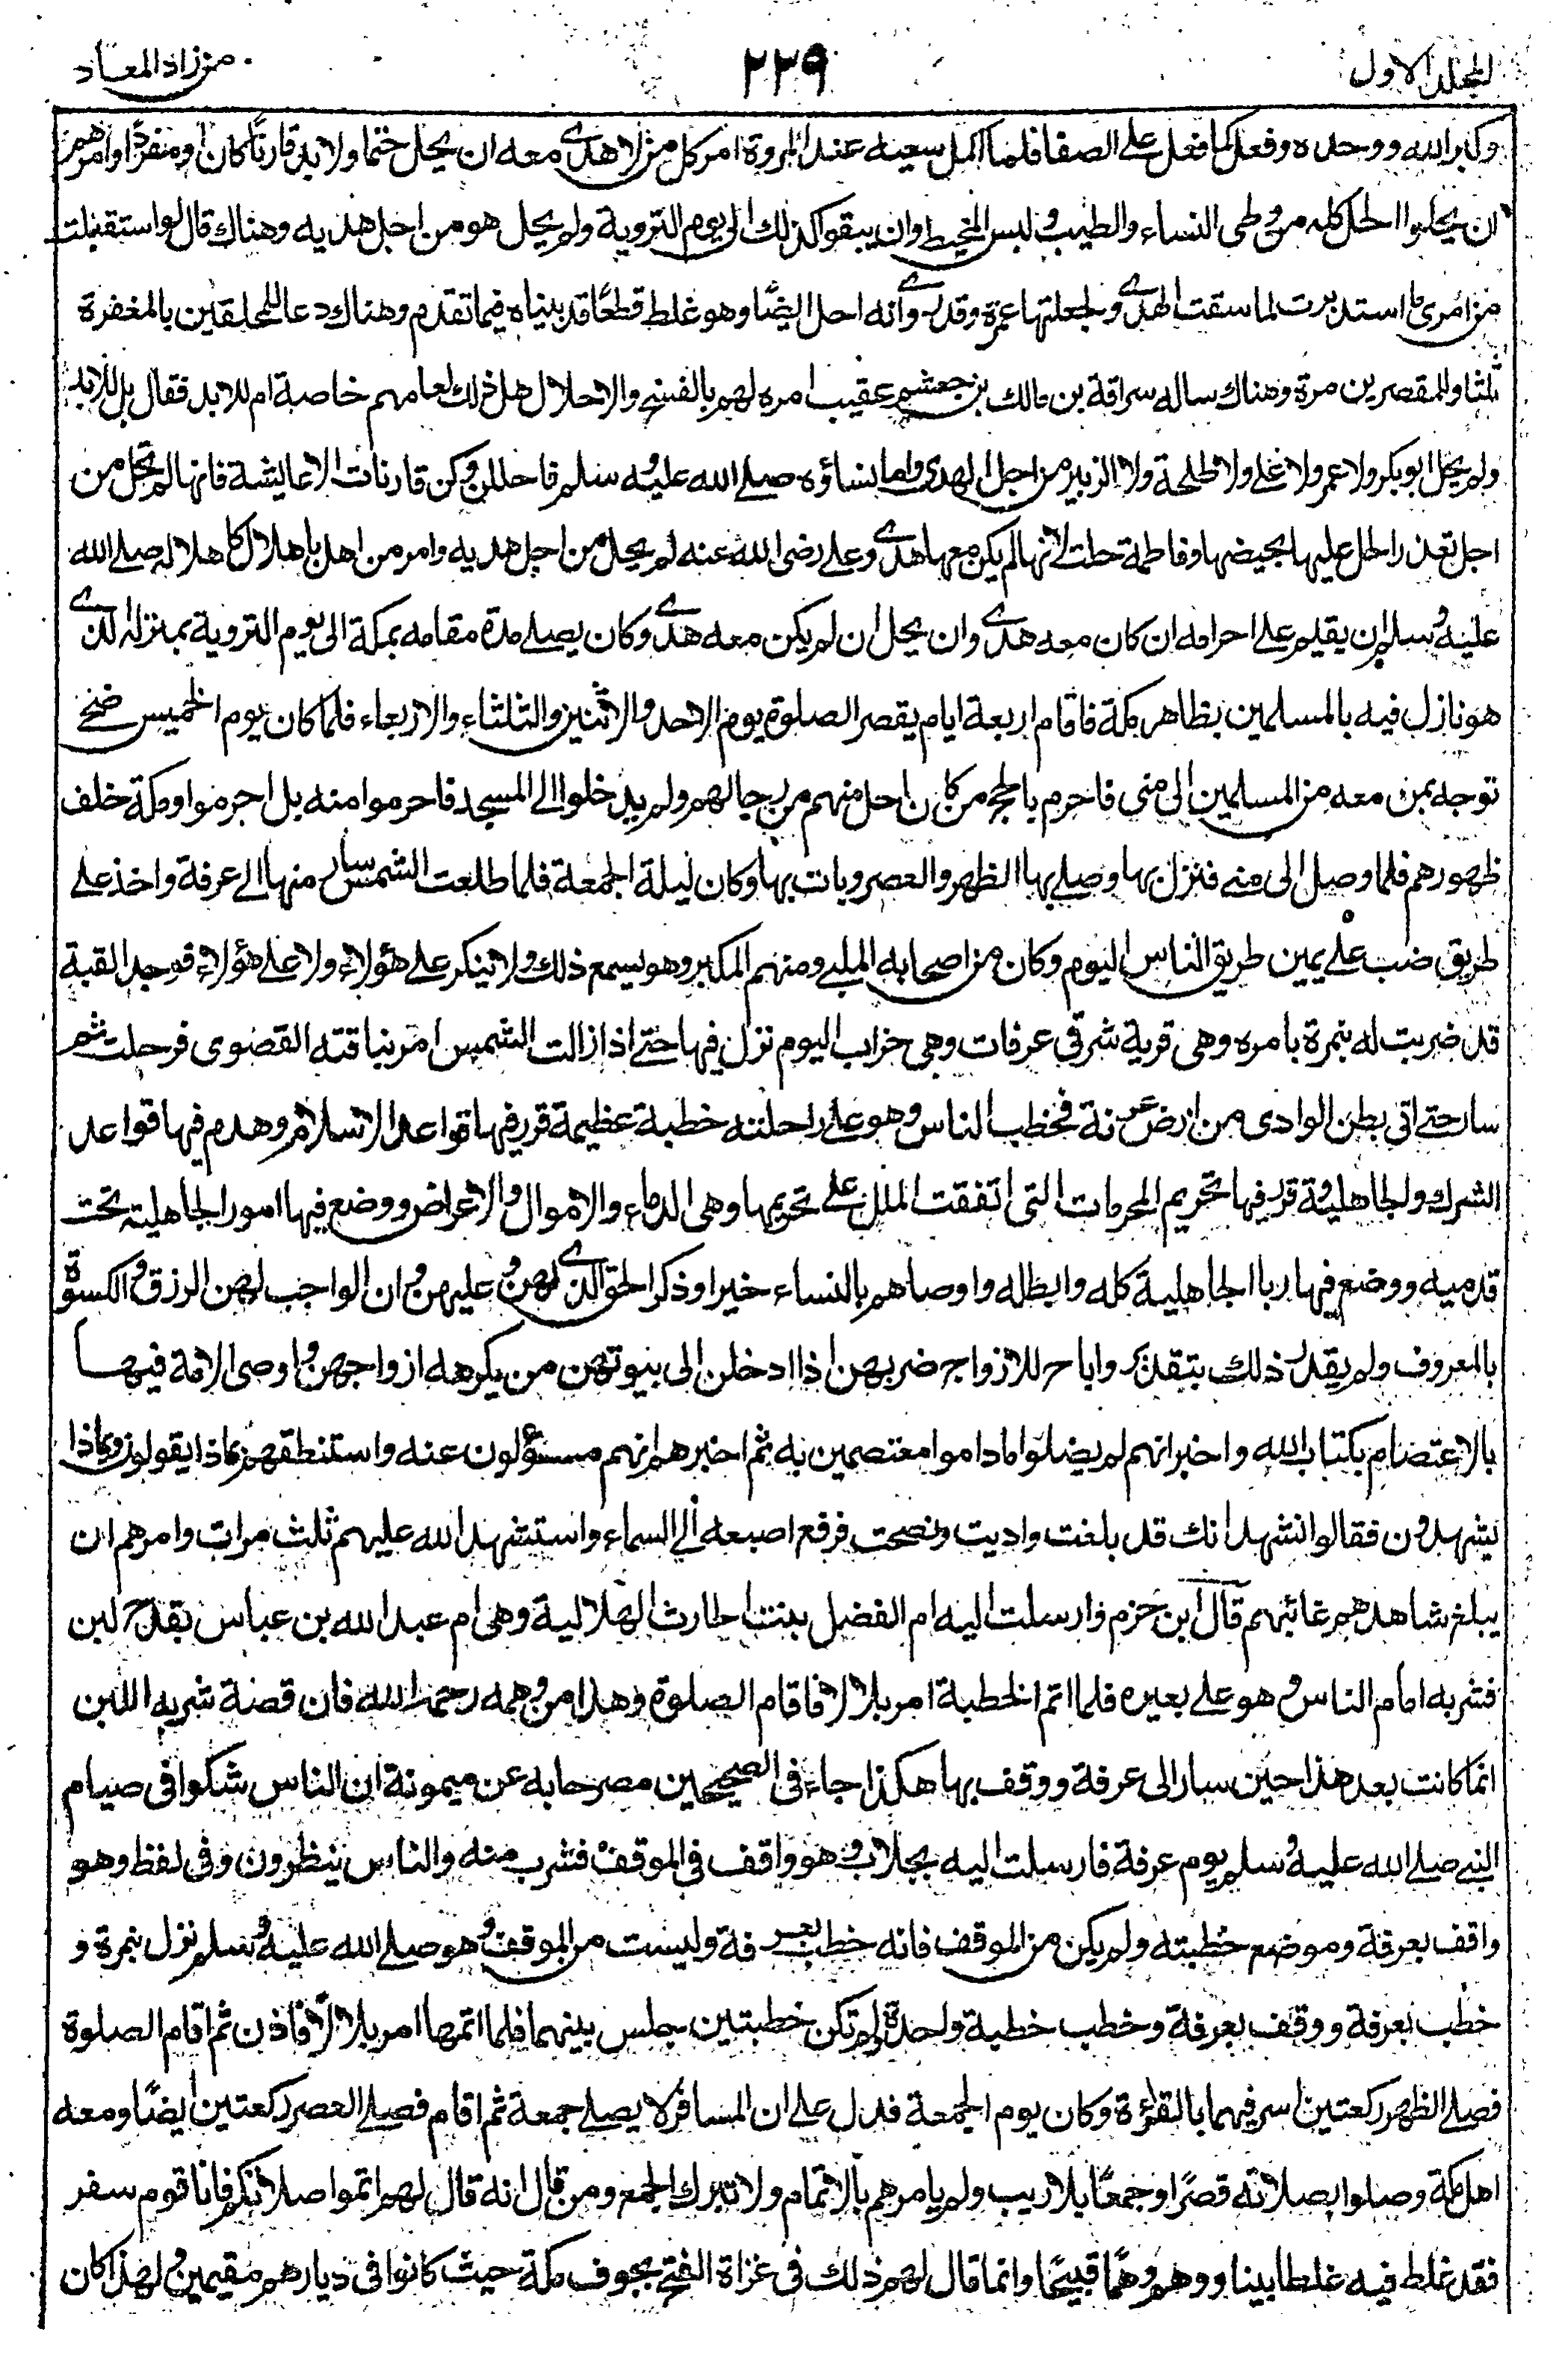 المجلد الاول
٢٢٩
من زاد المعاد
وكبر الله ووحده وفعل كما فعل على الصفا فلما اكمل سعيه عند المروة امر كل من لا هدي معه ان يحل حتما ولا بد قارنا كان او مفردا وامرهم
ان يحلوا الحل كله من وطى النساء والطيب ولبس المخيط وان يبقوا كذلك الى يوم التروية ولم يحل هو من اجل هديه وهناك قال لو استقبلت
من امرى ما استدبرت لما سقت الهدي ولجعلتها عمرة وقد روي انه احل ايضًا وهو غلط قطعًا قد بيناه فيما تقدم وهناك دعا للمحلقين بالمغفرة
ثلثا وللمقصرين مرة وهناك ساله سراقة بن مالك بن جعشم عقيب امره لهم بالفسخ والاحلال هل ذلك لعامهم خاصة ام للابد فقال بل للابد
ولم يحل ابو بكر ولا عمر ولا على ولا طلحة ولا الزبير من اجل الهدى واما نساؤه صلى الله عليه وسلم فاحللن وكن قارنات الا عائشة فانها لم تحل من
اجل تعذر الحل عليها بحيضها وفاطمة حلت لانها لم يكن معها هدي وعلى رضى الله عنه لم يحل من اجل هديه وامر من اهل باهلال كاهلاله صلى الله
عليه وسلم ان يقيم على احرامه ان كان معه هدي وان يحل ان لم يكن معه هدي وكان يصلى مدة مقامه بمكة الى يوم التروية بمنزله الذي
هو نازل فيه بالمسلمين بظاهر مكة فاقام اربعة ايام يقصر الصلوة يوم الاحد والاثنين والثلثاء والاربعاء فلما كان يوم الخميس ضحى
توجه بمن معه من المسلمين الى منى فاحرم بالحج من كان احل منهم من رحالهم ولم يدخلوا الى المسجد فاحرموا منه بل احرموا ومكة خلف
ظهورهم فلما وصل الى منى فنزل بها وصلى بها الظهر والعصر وبات بها وكان ليلة الجمعة فلما طلعت الشمس سار منها الى عرفة واخذ على
طريق ضب على يمين طريق الناس اليوم وكان من اصحابه الملبى ومنهم المكبر وهو يسمع ذلك ولا ينكر على هؤلاء ولا على هؤلاء فوجد القبة
قد ضربت له بنمرة بامره وهى قرية شرقى عرفات وهى خراب اليوم نزل فيها حتى اذا زالت الشمس امر بناقته القصوى فرحلت ثم
سار حتى اتى بطن الوادى من ارض عرنة فخطب الناس وهو على راحلته خطبة عظيمة قرر فيها قواعد الاسلام وهدم فيها قواعد
الشرك والجاهلية وقرر فيها تحريم المحرمات التى اتفقت الملل على تحريمها وهى الدماء والاموال والاعراض ووضع فيها امور الجاهلية تحت
قدميه ووضع فيها ربا الجاهلية كله وابطله واوصاهم بالنساء خيرا وذكر الحق الذي لهن وعليهن وان الواجب لهن الرزق والكسوة
بالمعروف ولم يقدر ذلك بتقدير واباح للازواج ضربهن اذا ادخلن الى بيوتهن من يكرهه ازواجهن واوصى الامة فيها
بالاعتصام بكتاب الله واخبر انهم لم يضلوا ماداموا معتصمين به ثم اخبرهم انهم مسئولون عنه واستنطقهم بماذا يقولون وبماذا
يشهدون فقالوا نشهد انك قد بلغت واديت ونصحت فرفع اصبعه الى السماء واستشهد الله عليهم ثلث مرات وامرهم ان
يبلغ شاهدهم غائبهم قال ابن حزم وارسلت اليه ام الفضل بنت الحارث الهلالية وهى ام عبد الله بن عباس بقدح لبن
فشربه امام الناس وهو على بعيره فلما اتم الخطبة امر بلالا فاقام الصلوة وهذا من وهمه رحمه الله فان قصة شربه اللبن
انما كانت بعد هذا حين سار الى عرفة ووقف بها هكذا جاء فى الصحيحين مصرحا به عن ميمونة ان الناس شكوا فى صيام
النبى صلى الله عليه وسلم يوم عرفة فارسلت اليه بحلاب وهو واقف فى الموقف فشرب منه والناس ينظرون وفى لفظ وهو
واقف بعرفة وموضع خطبته ولم يكن من الموقف فانه خطب بعرفة وليست من الموقف وهو صلى الله عليه وسلم نزل بنمرة و
خطب بعرفة ووقف بعرفة وخطب خطبة واحدة لم تكن خطبتين جلس بينهما فلما اتمها امر بلالا فاذن ثم اقام الصلوة
فصلى الظهر ركعتين اسر فيهما بالقراءة وكان يوم الجمعة فدل على ان المسافر لا يصلى جمعة ثم اقام فصلى العصر ركعتين ايضًا ومعه
اهل مكة وصلوا بصلاته قصرًا وجمعًا بلا ريب ولم يامرهم بالاتمام ولا بترك الجمع ومن قال انه قال لهم اتموا صلاتكم فانا قوم سفر
فقد غلط فيه غلطا بينا ووهم وهمًا قبيحًا وانما قال لهم ذلك فى غزاة الفتح بجوف مكة حيث كانوا فى ديارهم مقيمين ولهذا كان